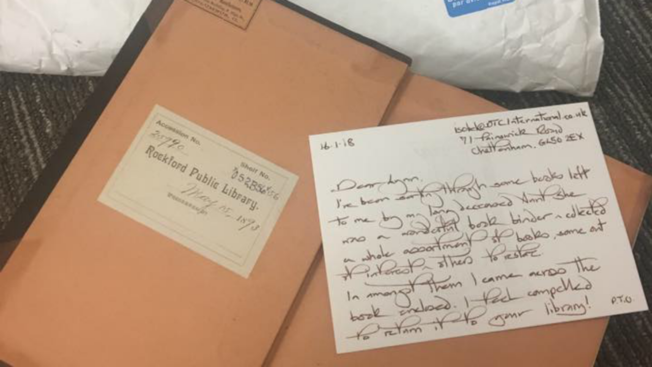 Accession No.
Shelf No.
Rockford Public Library.
16.1.18
71 Painswick Road
Cheltenham, GL50 2EX
Dear Lynn,
I've been sorting through some books left
to me by my long deceased Aunt. She
was a wonderful book binder & collected
a whole assortment of books, some out
of interest & others to restore.
In amongst them I came across the
book enclosed. I feel compelled
to return it to your library!
P.T.O